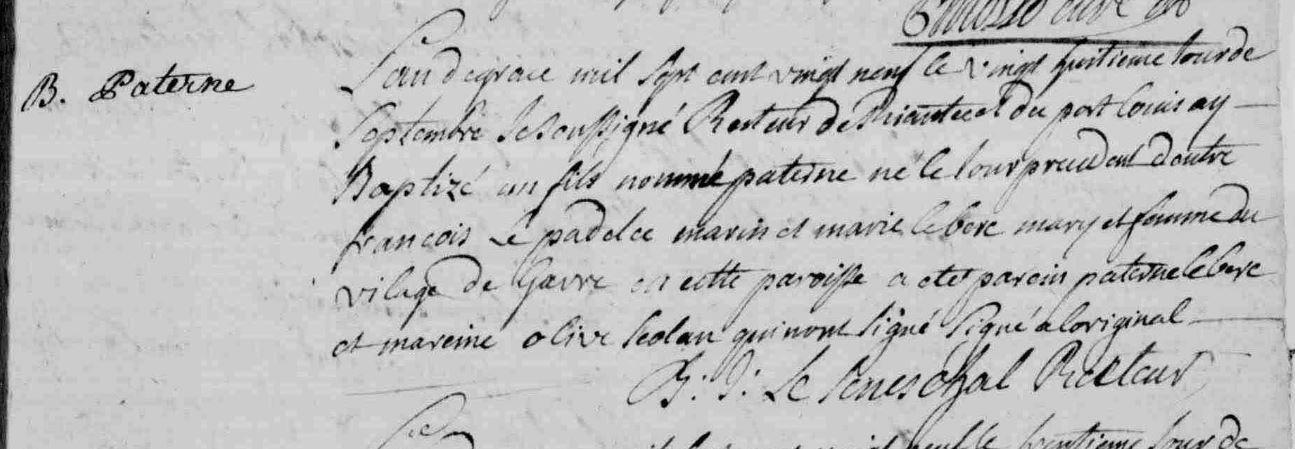 B. Paterne
L'an de grace mil sept cent vingt neuf le vingt huitieme Jour de
Septembre Je soussigné Recteur de Riantec et du port Louis ay
Baptizé un fils nommé paterne né le Jour precedent d'entre
françois Le padelec marin et marie le berc mary et femme du
vilage de Gavre en cette paroisse a eté parein paterne le berc
et mareine olive qui n'ont signé signé a l'original
Le Seneschal Recteur
vingt neuf le trentieme Jour de